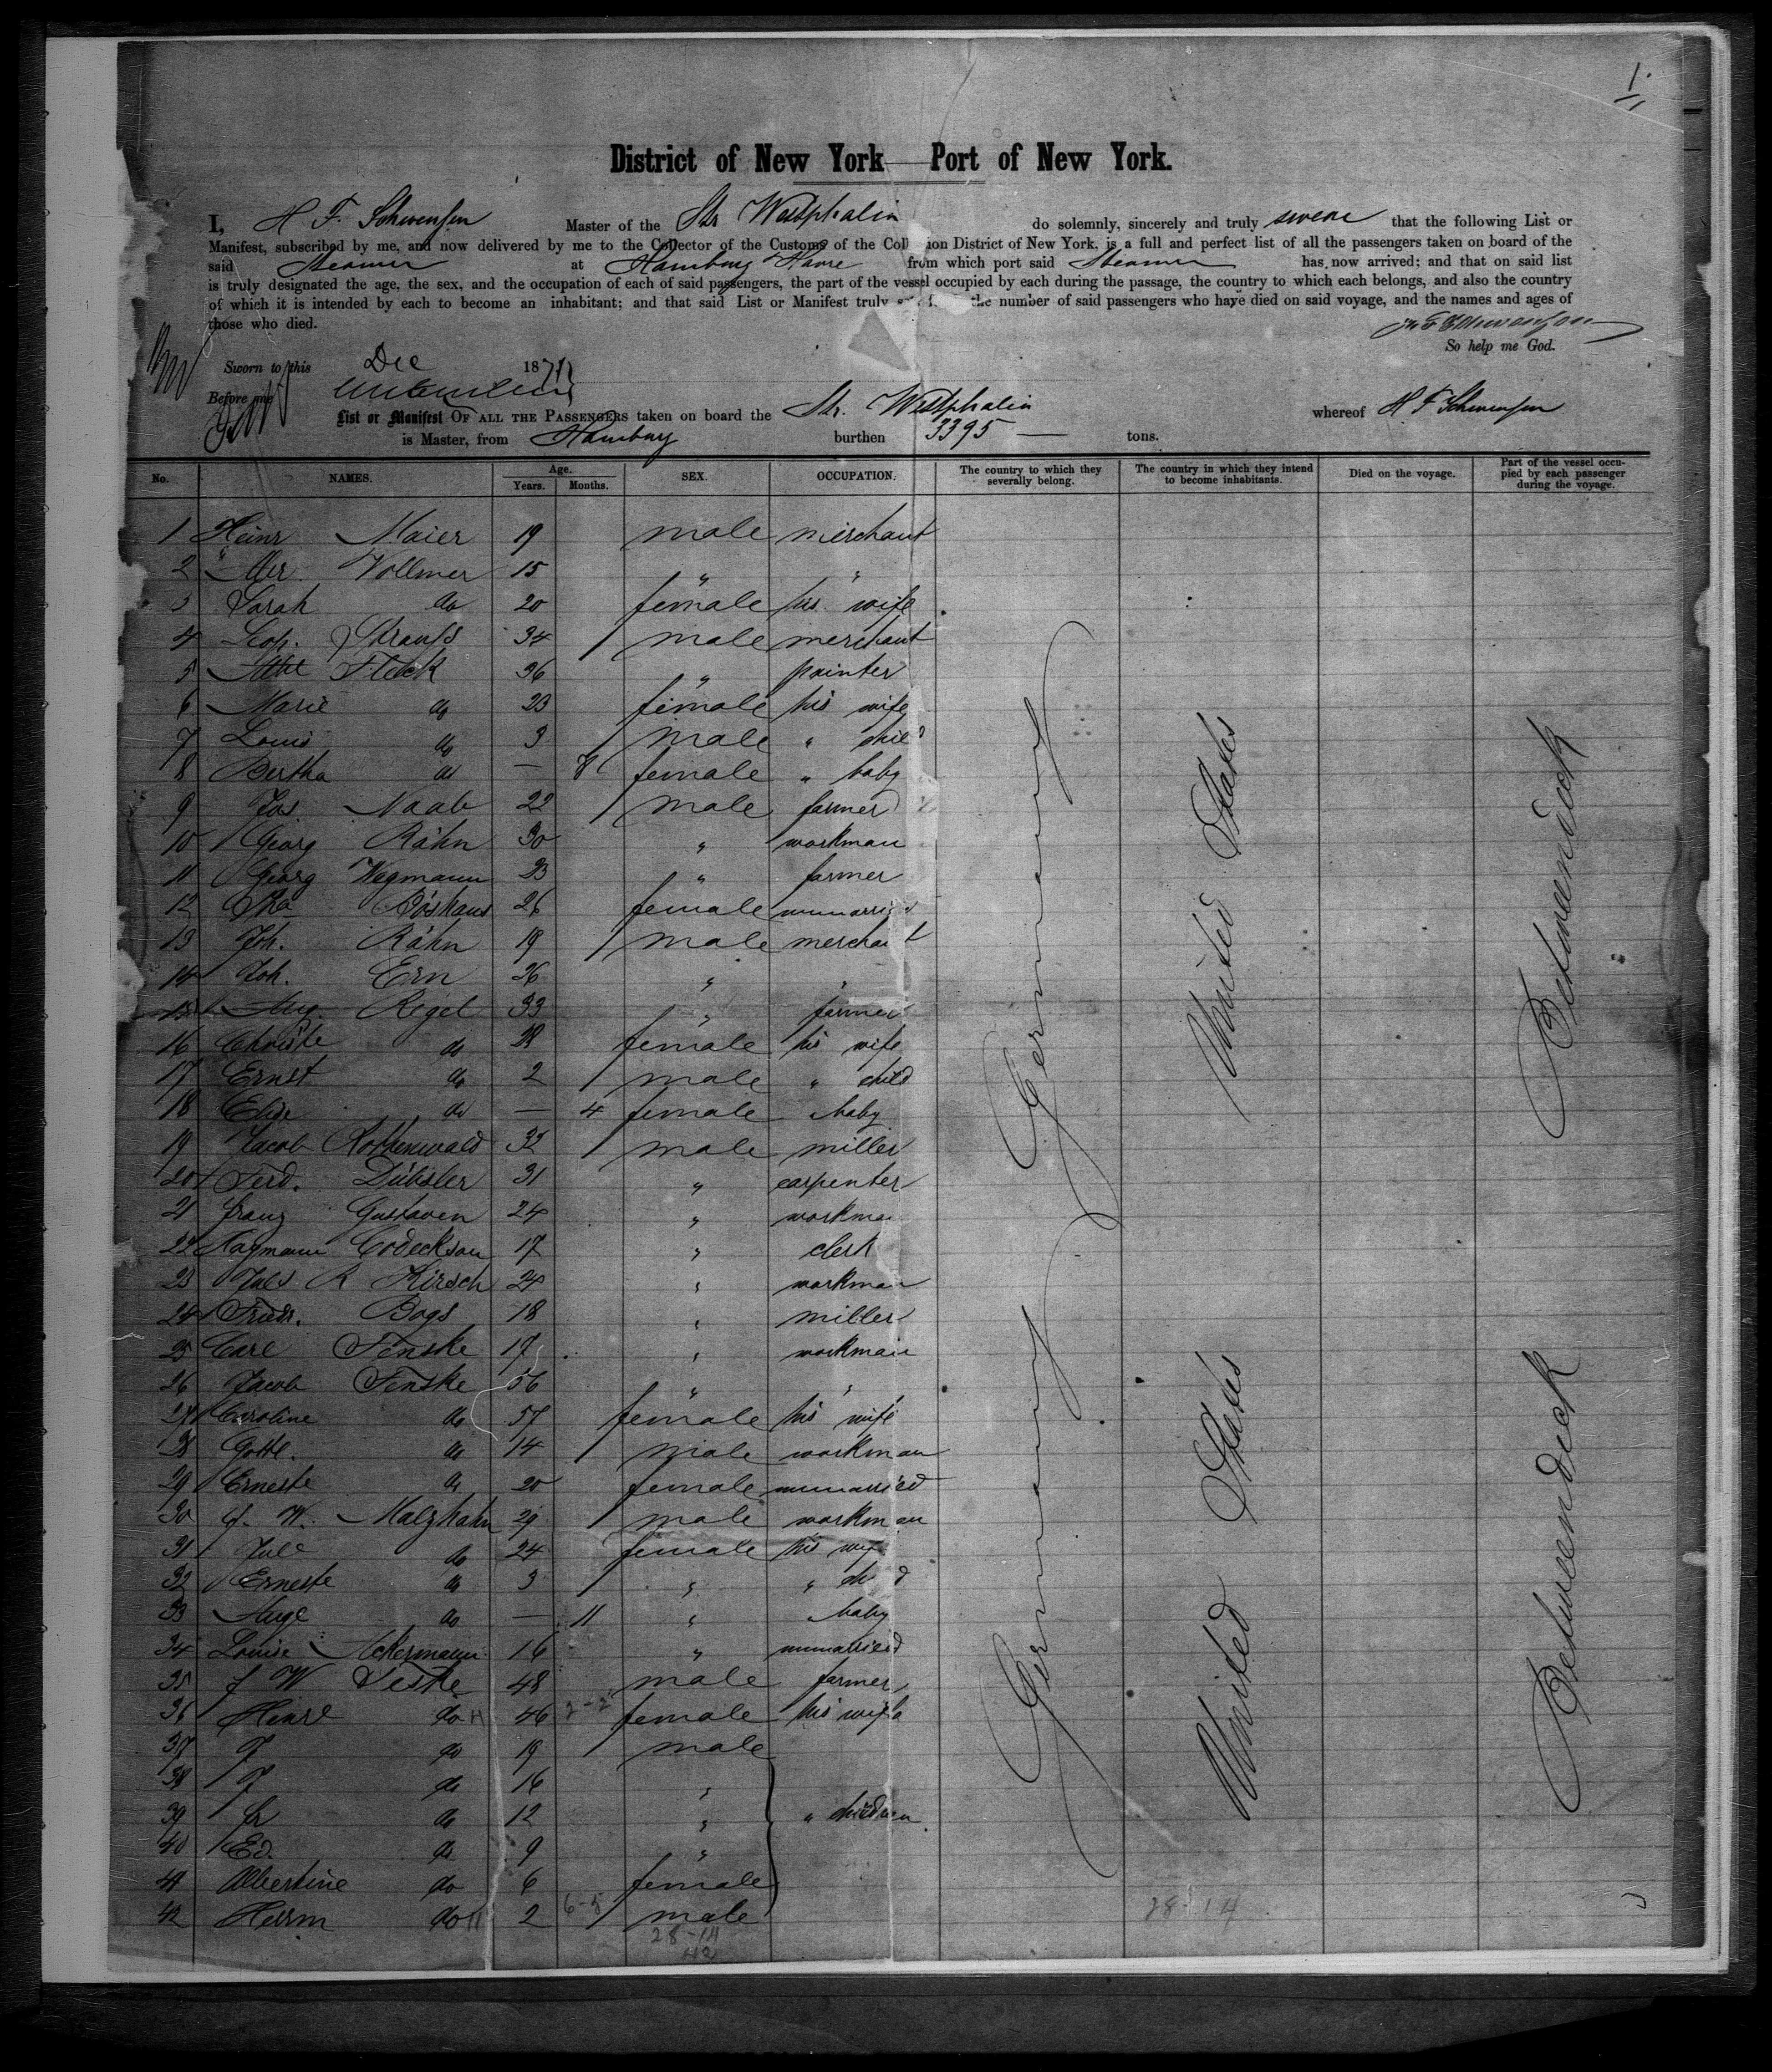 1.
District of New York — Port of New York.
I, H F. Schwensen Master of the Str Westphalia do solemnly, sincerely and truly swear that the following List or
Manifest, subscribed by me, and now delivered by me to the Collector of the Customs of the Coll ion District of New York, is a full and perfect list of all the passengers taken on board of the
said Steamer at Hamburg Havre from which port said Steamer has now arrived; and that on said list
is truly designated the age, the sex, and the occupation of each of said passengers, the part of the vessel occupied by each during the passage, the country to which each belongs, and also the country
of which it is intended by each to become an inhabitant; and that said List or Manifest truly the number of said passengers who have died on said voyage, and the names and ages of
those who died.
H F Schwensen
So help me God.
Sworn to this Dec 1871
Before me
List or Manifest OF ALL THE PASSENGERS taken on board the Str. Westphalia whereof H F Schwensen
is Master, from Hamburg burthen 3395 — tons.
No. NAMES. Age. Years. Months. SEX. OCCUPATION. The country to which they severally belong. The country in which they intend to become inhabitants. Died on the voyage. Part of the vessel occupied by each passenger during the voyage.
1 Heinr Maier 19 male merchant
2 Vollmer 15 " "
3 Sarah do 20 female his wife
4 Leop. Strauss 34 male merchant
5 Fleck 36 " painter
6 Marie do 23 female his wife
7 Louis do 3 male " child
8 Bertha do — 8 female " baby
9 Jos. Naab 22 male farmer
10 Georg Rähn 30 " workman
11 Georg Wegmann 23 " farmer
12 Röshaus 26 female unmarried
13 Joh. Rähn 19 male merchant
14 Joh. Ern 26 " "
15 Aug. Regel 33 " farmer
16 Christe do 28 female his wife
17 Ernst do 2 male " child
18 Elise do — 4 female baby
19 Jacob Rothenwald 32 male miller
20 Ferd. Dübsler 31 " carpenter
21 Franz Gustaven 24 " workma
22 Nagmann Codeckson 17 " clerk
23 Juls R Hirsch 24 " workman
24 Friedr. Bogs 18 " miller
25 Carl Finske 17 " workman
26 Jacob Finske 56 " "
27 Caroline do 57 female his wife
28 Gottl. do 14 male workman
29 Erneste do 20 female unmarried
30 J. W. Malzhahn 29 male workman
31 Jule do 24 female his wife
32 Erneste do 3 " "
33 Auge do — 11 " baby
34 Louise Ackermann 16 " unmarried
35 J W Teske 48 male farmer
36 Henre do 46 female his wife
37 F do 19 male
38 F do 16 "
39 Fr do 12 " " children
40 Ed. do 9 "
41 Albertine do 6 female
42 Herm do 2 male
6-5
28-14
42
28-14
Germany
Germany
United States
United States
Betweendeck
Betweendeck